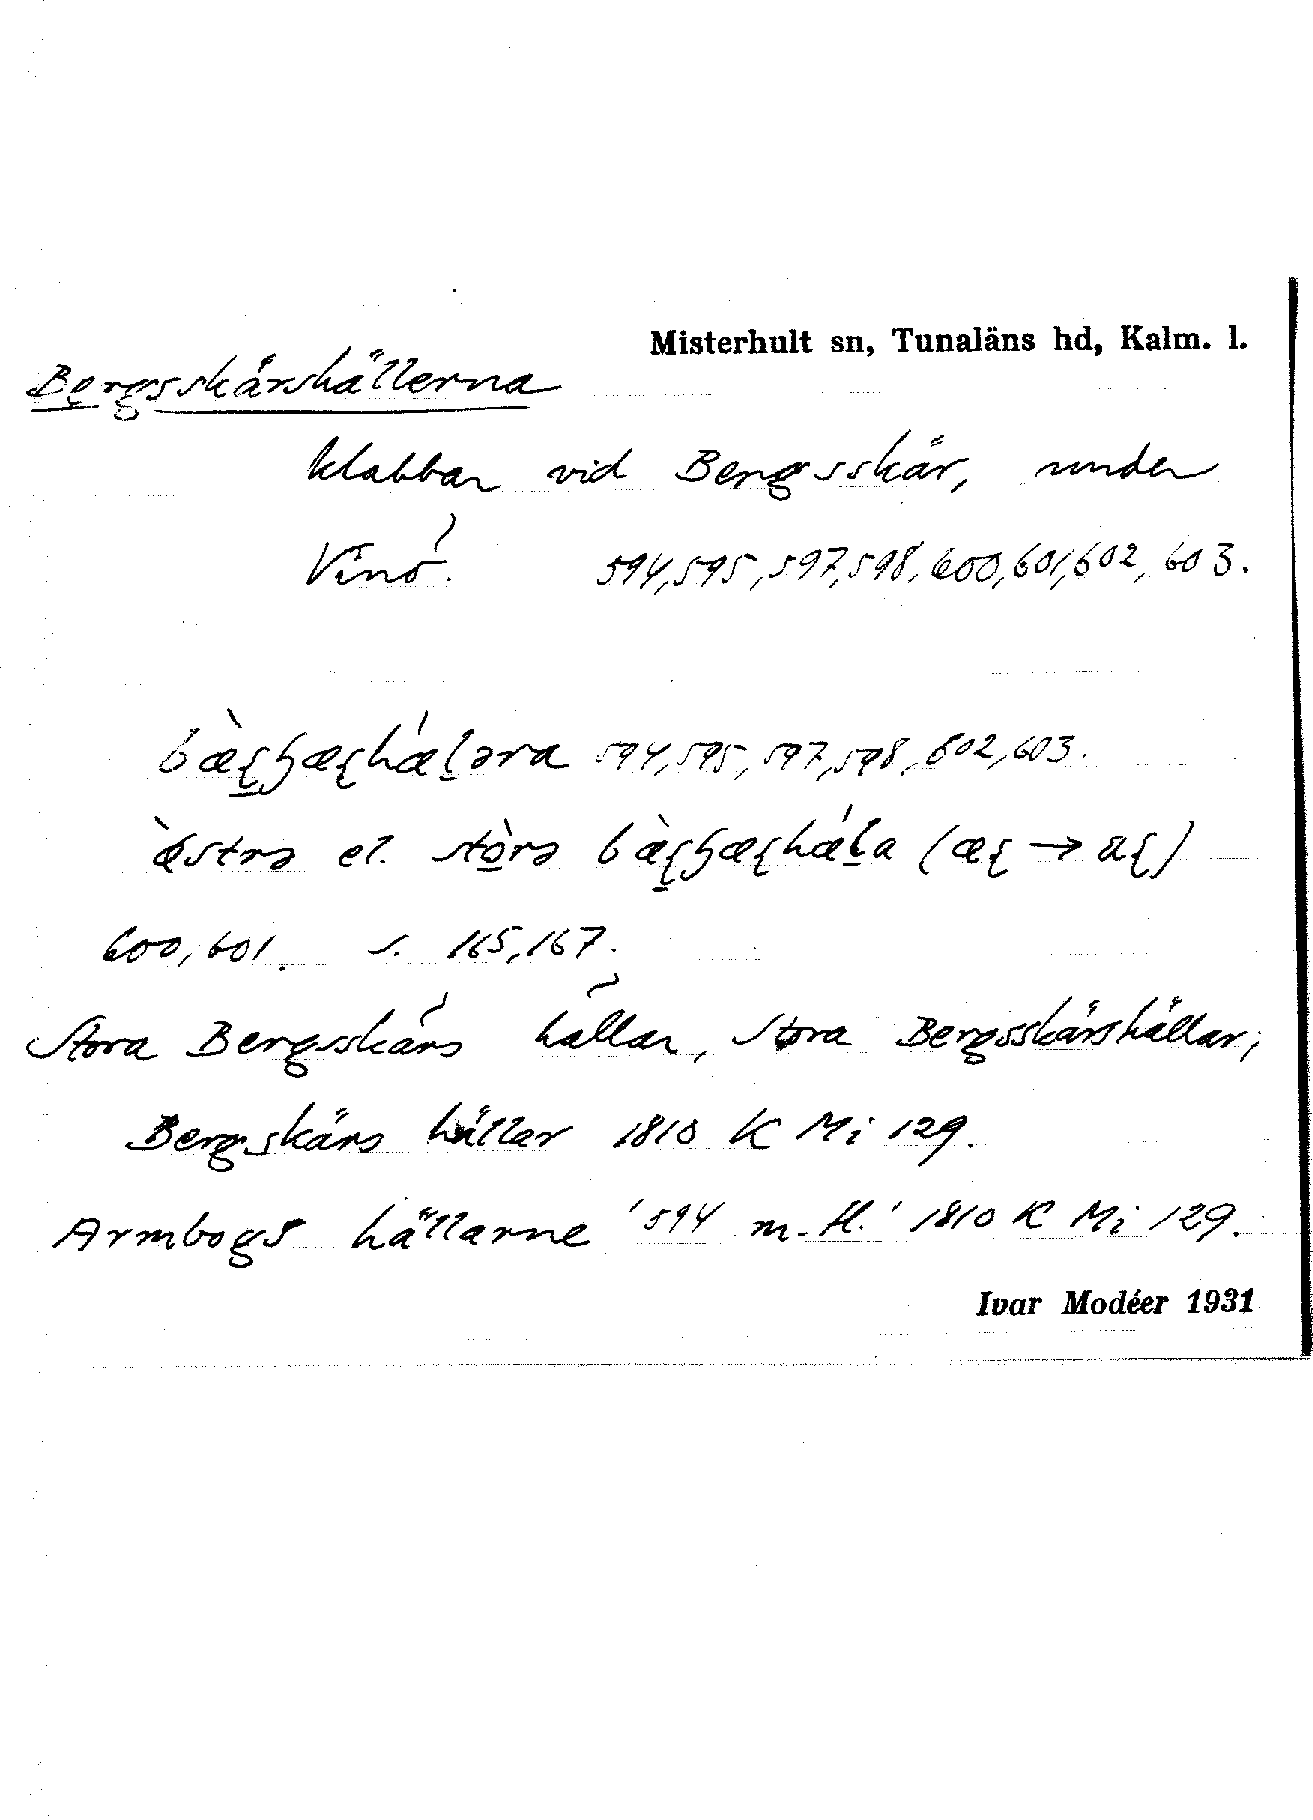 Misterhult sn, Tunaläns hd, Kalm. l.
Bergsskärshällerna
klabbar vid Bergsskär, under
Vinö. 594, 595, 597, 598, 600, 601, 602, 603.
594, 595, 597, 598, 602, 603.
el.
600, 601. s. 165, 167.
Stora Bergsskärs hällar, Stora Bergsskärshällar,
Bergskärs hällar 1810 K Mi 129.
Armbogs hällarne '594 m. fl.' 1810 K Mi 129.
Ivar Modéer 1931